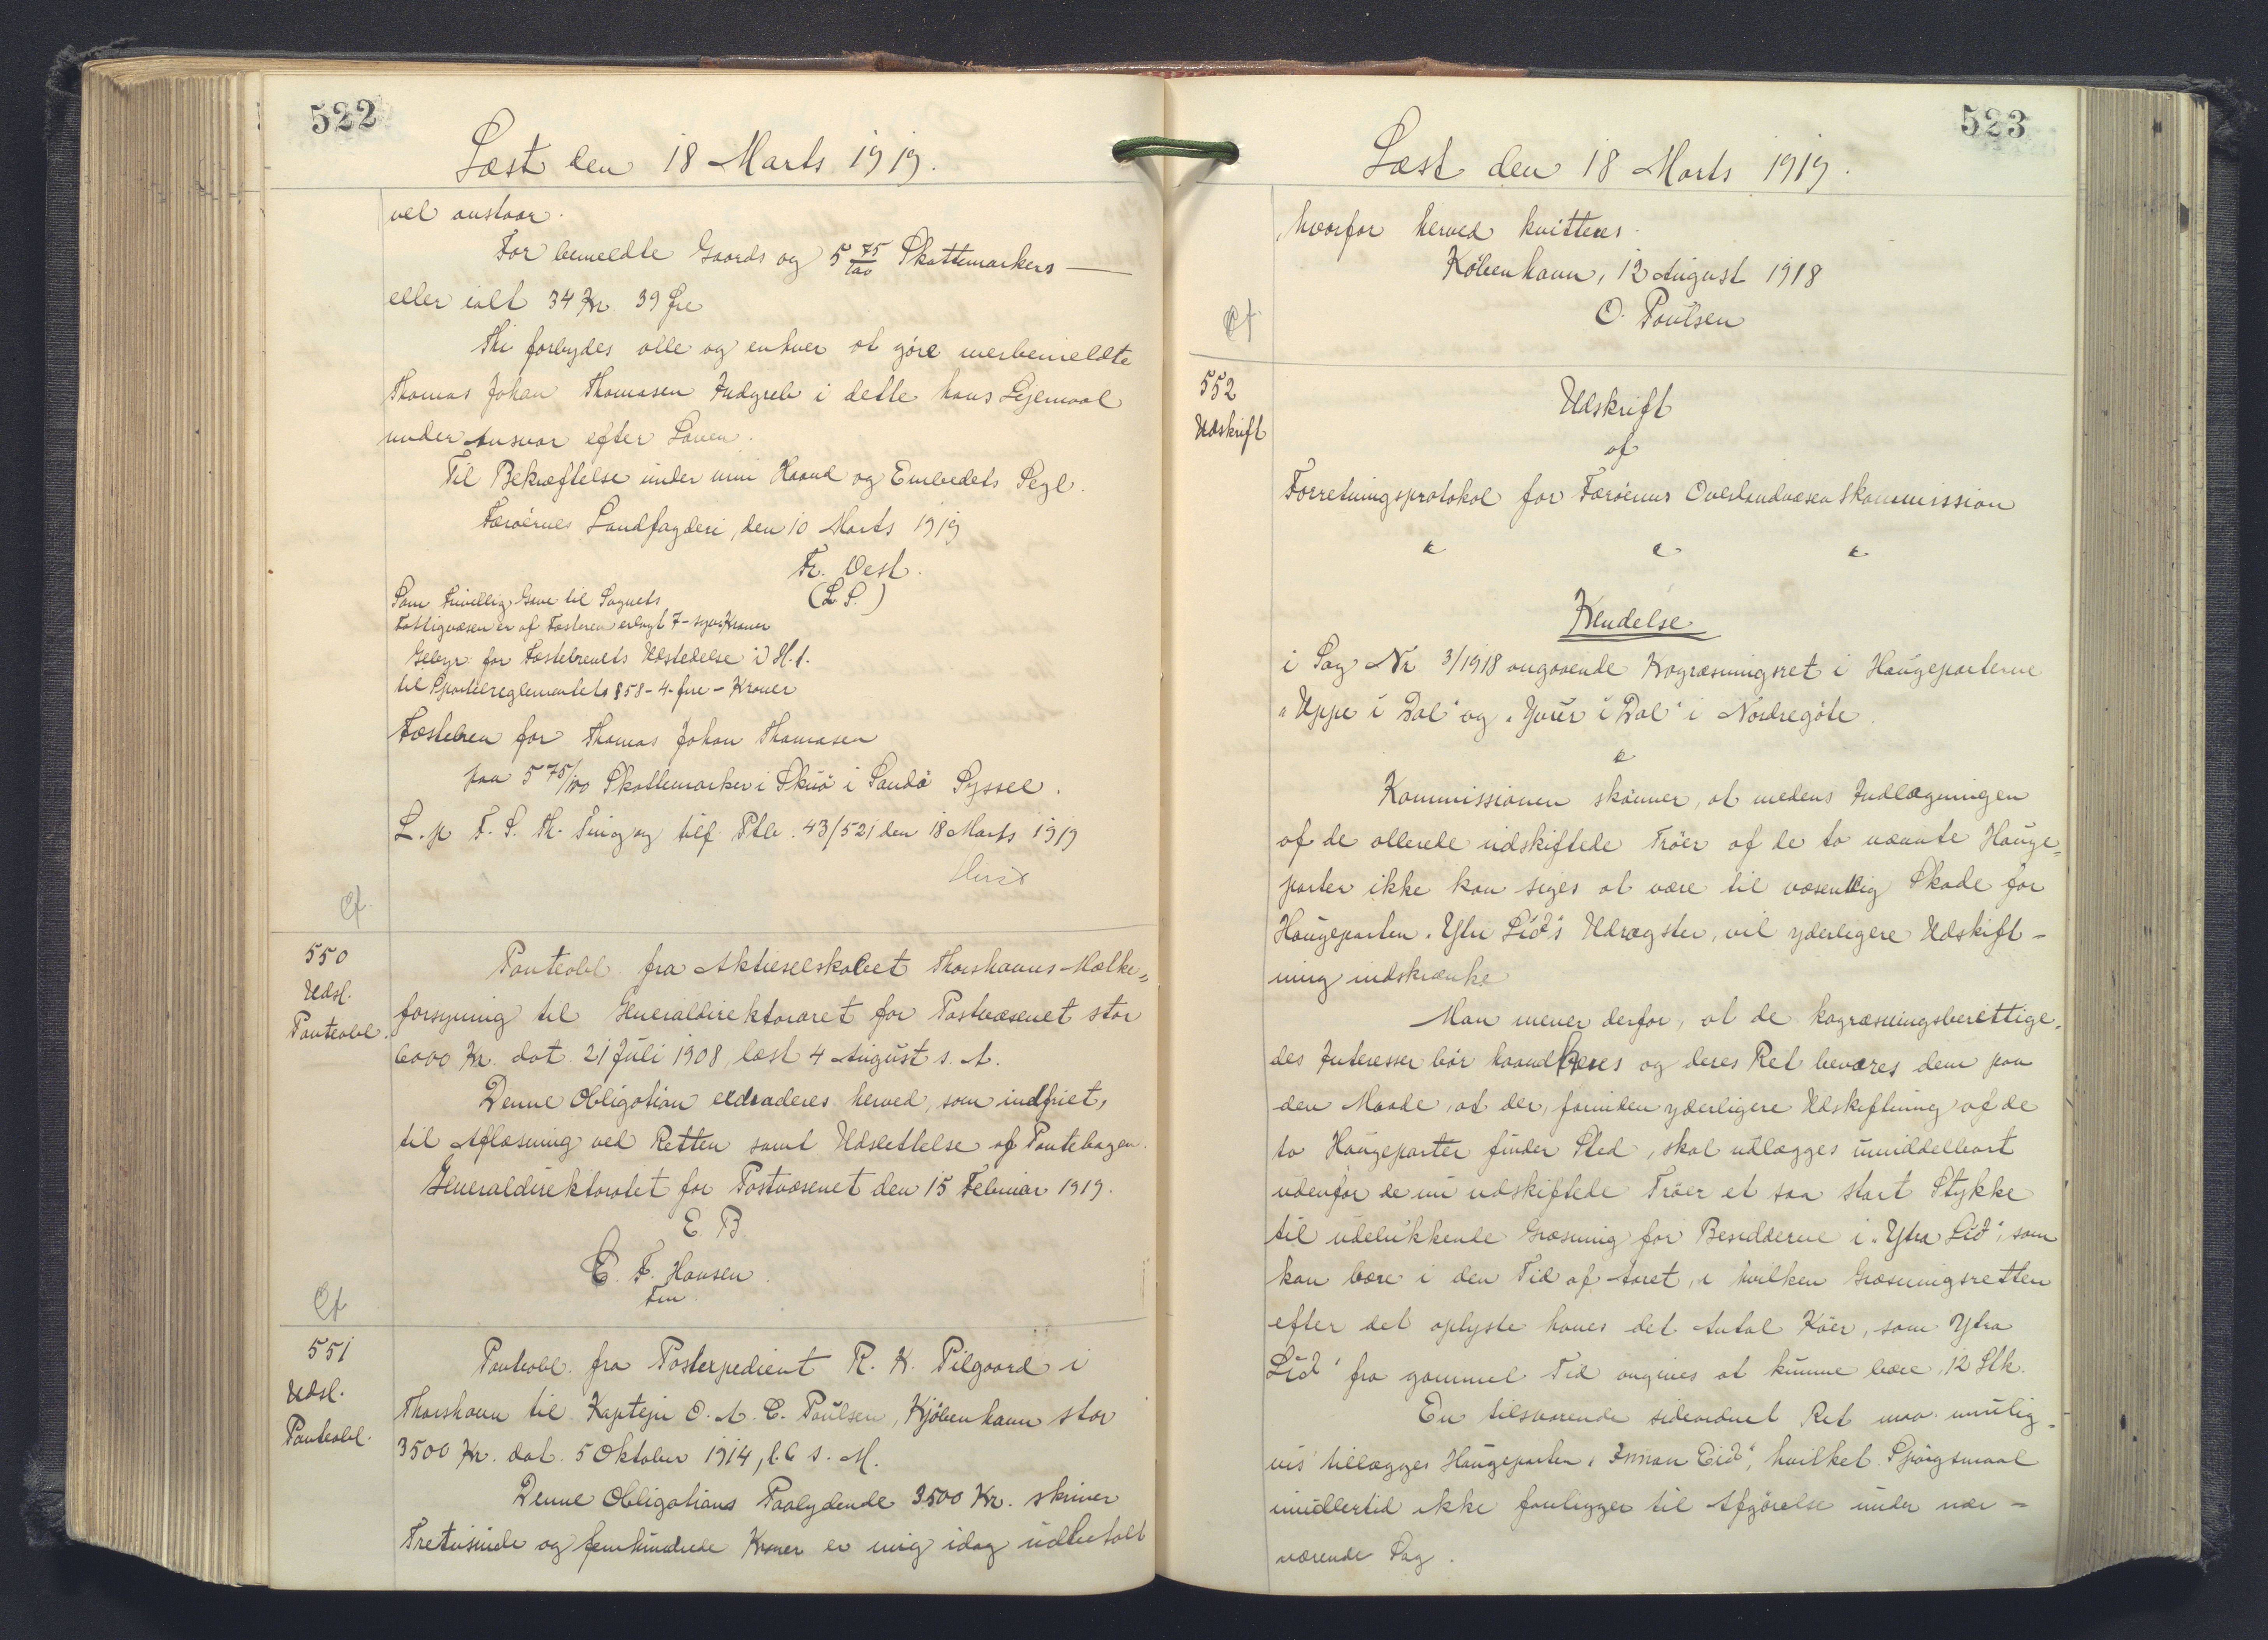 522
Læst den 18 Marts 1919.
vel anstaar.
For bemeldte Gaards og 5 75/100 Skattemarkers —
eller ialt 34 Kr 39 Øre
Thi forbydes alle og enhver at göre merbemeldte
Thomas Johan Thomasen Indgreb i dette hans Lejemaal
under Ansvar efter Loven.
Til Bekræftelse under min Haand og Embedets Segl.
Færöernes Landfogderi, den 10 Marts 1919
Fr. Vest.
(L. S.)
Som frivillig Gave til Sognets
Fattigvæsen er af Fæsteren erlagt 7 - syv Kroner
Gebyr for Fæstebrevets Udstedelse i H. t.
til Sportelreglementets § 58 - 4 - fire - Kroner
Fæstebrev for Thomas Johan Thomasen
paa 5 75/100 Skattemarker i Skuö i Sandö Syssel.
L. p F. S. Th. Ting og tilf. Ptb. 43/521 den 18 Marts 1919
Cf.
550
Udsl.
Panteobl.
Panteobl. fra Aktieselskabet Thorshavns Mælke-
forsyning til Generaldirektoraret for Postvæsenet stor
6000 Kr. dat. 21 Juli 1908, læst 4 August s. A.
Denne Obligation extraderes herved, som indfriet,
til Aflæsning ved Retten samt Udslettelse af Pantebogen.
Generaldirektoratet for Postvæsenet den 15 Februar 1919.
E. B.
C. F. Hansen.
Fm.
Cf
551
Udsl.
Panteobl.
Panteobl. fra Postexpedient R. K. Pilgaard i
Thorshavn til Kaptejn O. A. C. Poulsen, Kjöbenhavn stor
3500 Kr. dat. 5 Oktober 1914, l. 6 s. M.
Denne Obligations Paalydende 3500 Kr. skriver
Tretusinde og femhundrede Kroner er mig idag udbetalt
523
Læst den 18 Marts 1919.
hvorfor herved kvitteres.
Köbenhavn, 12 August 1918
O. Poulsen
Cf.
552
Udskrift
Udskrift
af
Forretningsprotokol for Færöernes Overlandvæsenskommission
Kendelse
i Sag Nr 3/1918 angaaende Kogræsningsret i Haugeparterne
"Uppi i Dal" og "Yvir i Dal" i Nordregöte.
Kommissionen skönner, at medens Indlægningen
af de allerede udskiftede Tröer af de to nævnte Hauge-
parter ikke kan siges at være til væsentlig Skade for
Haugeparten "Ytri Lid"s Udrægster, vil yderligere Udskift-
ning indskrænke
Man mener derfor, at de kogræsningsberettige-
des Interesser bör haandhæves og deres Ret bevares dem paa
den Maade, at der, forinden yderligere Udskiftning af de
to Haugeparter finder Sted, skal udlægges umiddelbart
udenfor de nu udskiftede Tröer et saa stort Stykke
til udelukkende Græsning for Besidderne i "Ytra Lid", som
kan bære i den Tid af Aaret, i hvilken Græsningsretten
efter det oplyste haves det Antal Köer, som "Ytra
Lid" fra gammel Tid angives at kunne bære, 12 Stk.
En tilsvarende sideordnet Ret maa mulig-
vis tillægges Haugeparten "Innan Eid", hvilket Spörgsmaal
imidlertid ikke foreligger til Afgörelse under nær-
værende Sag.